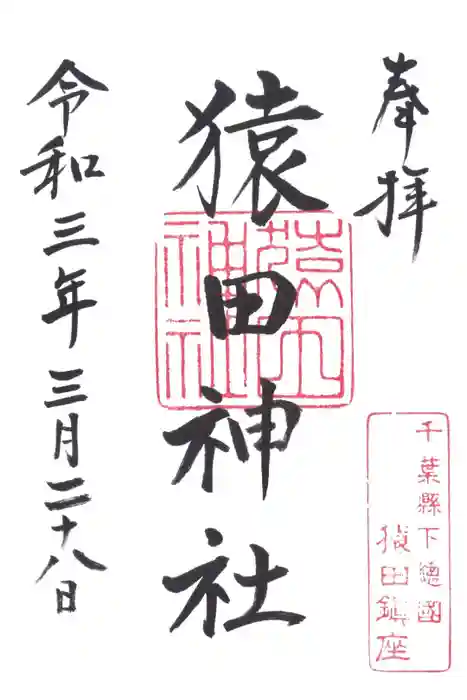 奉拝
千葉縣下總國
猿田鎮座
猿田神社
令和三年三月二十八日